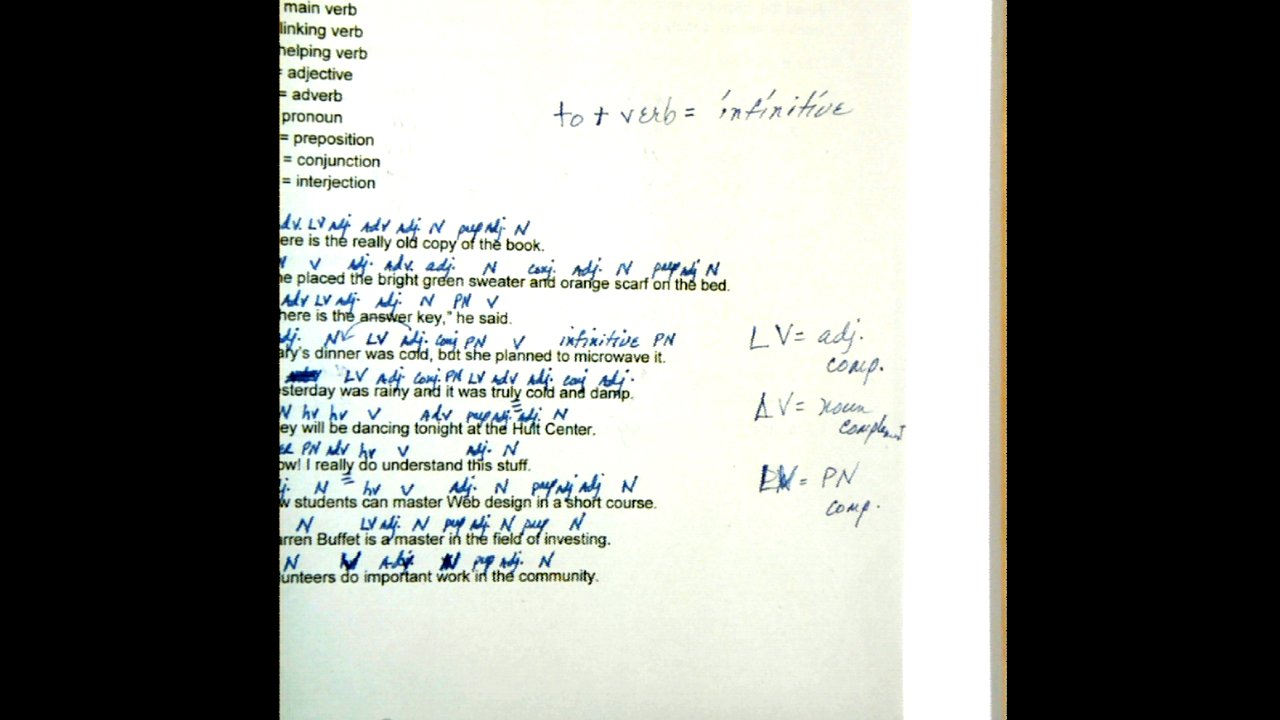 main verb
linking verb
helping verb
= adjective
= adverb
to + verb = infinitive
pronoun
= preposition
= conjunction
= interjection
adv. LV adj. Adv adj. N prep adj. N
ere is the really old copy of the book.
N V adj. adv. adj. N conj. adj. N prep adj N
he placed the bright green sweater and orange scarf on the bed.
Adv LV adj. adj. N PN V
here is the answer key," he said.
adj. N LV adj. conj PN V infinitive PN
ary's dinner was cold, but she planned to microwave it.
LV = adj.
comp.
LV Adj conj. PN LV adv adj. conj adj.
sterday was rainy and it was truly cold and damp.
LV = noun
complement
N hv hv V Adv prep adj. adj. N
ey will be dancing tonight at the Hult Center.
PN adv hv V adj. N
ow! I really do understand this stuff.
LV = PN
comp.
j. N hv V adj. N prep adj adj N
w students can master Web design in a short course.
N LV adj. N prep adj. N prep N
arren Buffet is a master in the field of investing.
N V Adj N prep adj. N
unteers do important work in the community.